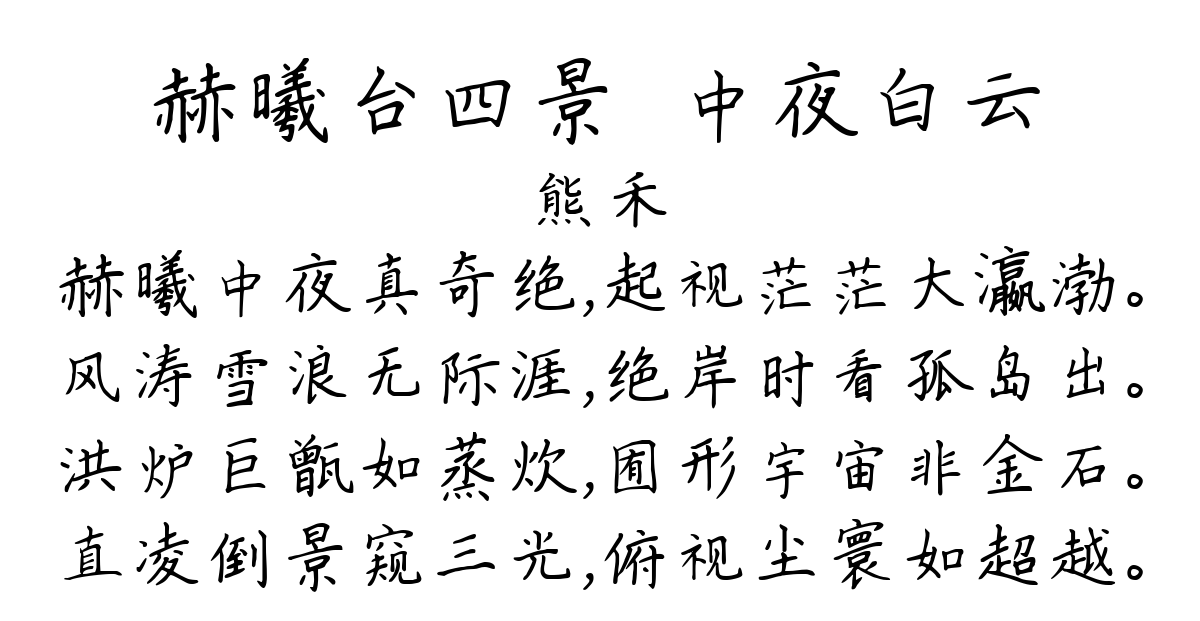 赫曦台四景 中夜白云
熊禾
赫曦中夜真奇绝,起视茫茫大瀛渤。
风涛雪浪无际涯,绝岸时看孤岛出。
洪炉巨甑如蒸炊,囿形宇宙非金石。
直凌倒景窥三光,俯视尘寰如超越。